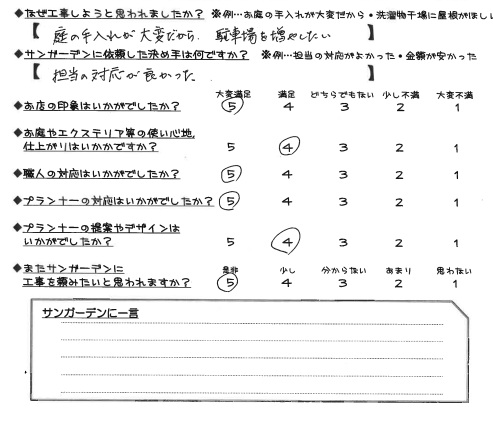 ◆なぜ工事しようと思われましたか？ ※例…お庭の手入れが大変だから・洗濯物干場に屋根がほしい
【 庭の手入れが大変だから、駐車場を増やしたい 】
◆サンガーデンに依頼した決め手は何ですか？ ※例…担当の対応がよかった・金額が安かった
【 担当の対応が良かった 】
大変満足 満足 どちらでもない 少し不満 大変不満
◆お店の印象はいかがでしたか？ 5 4 3 2 1
◆お庭やエクステリア等の使い心地、
仕上がりはいかがですか？ 5 4 3 2 1
◆職人の対応はいかがでしたか？ 5 4 3 2 1
◆プランナーの対応はいかがでしたか？ 5 4 3 2 1
◆プランナーの提案やデザインは
いかがでしたか？ 5 4 3 2 1
◆またサンガーデンに 是非 少し 分からない あまり 思わない
工事を頼みたいと思われますか？ 5 4 3 2 1
サンガーデンに一言